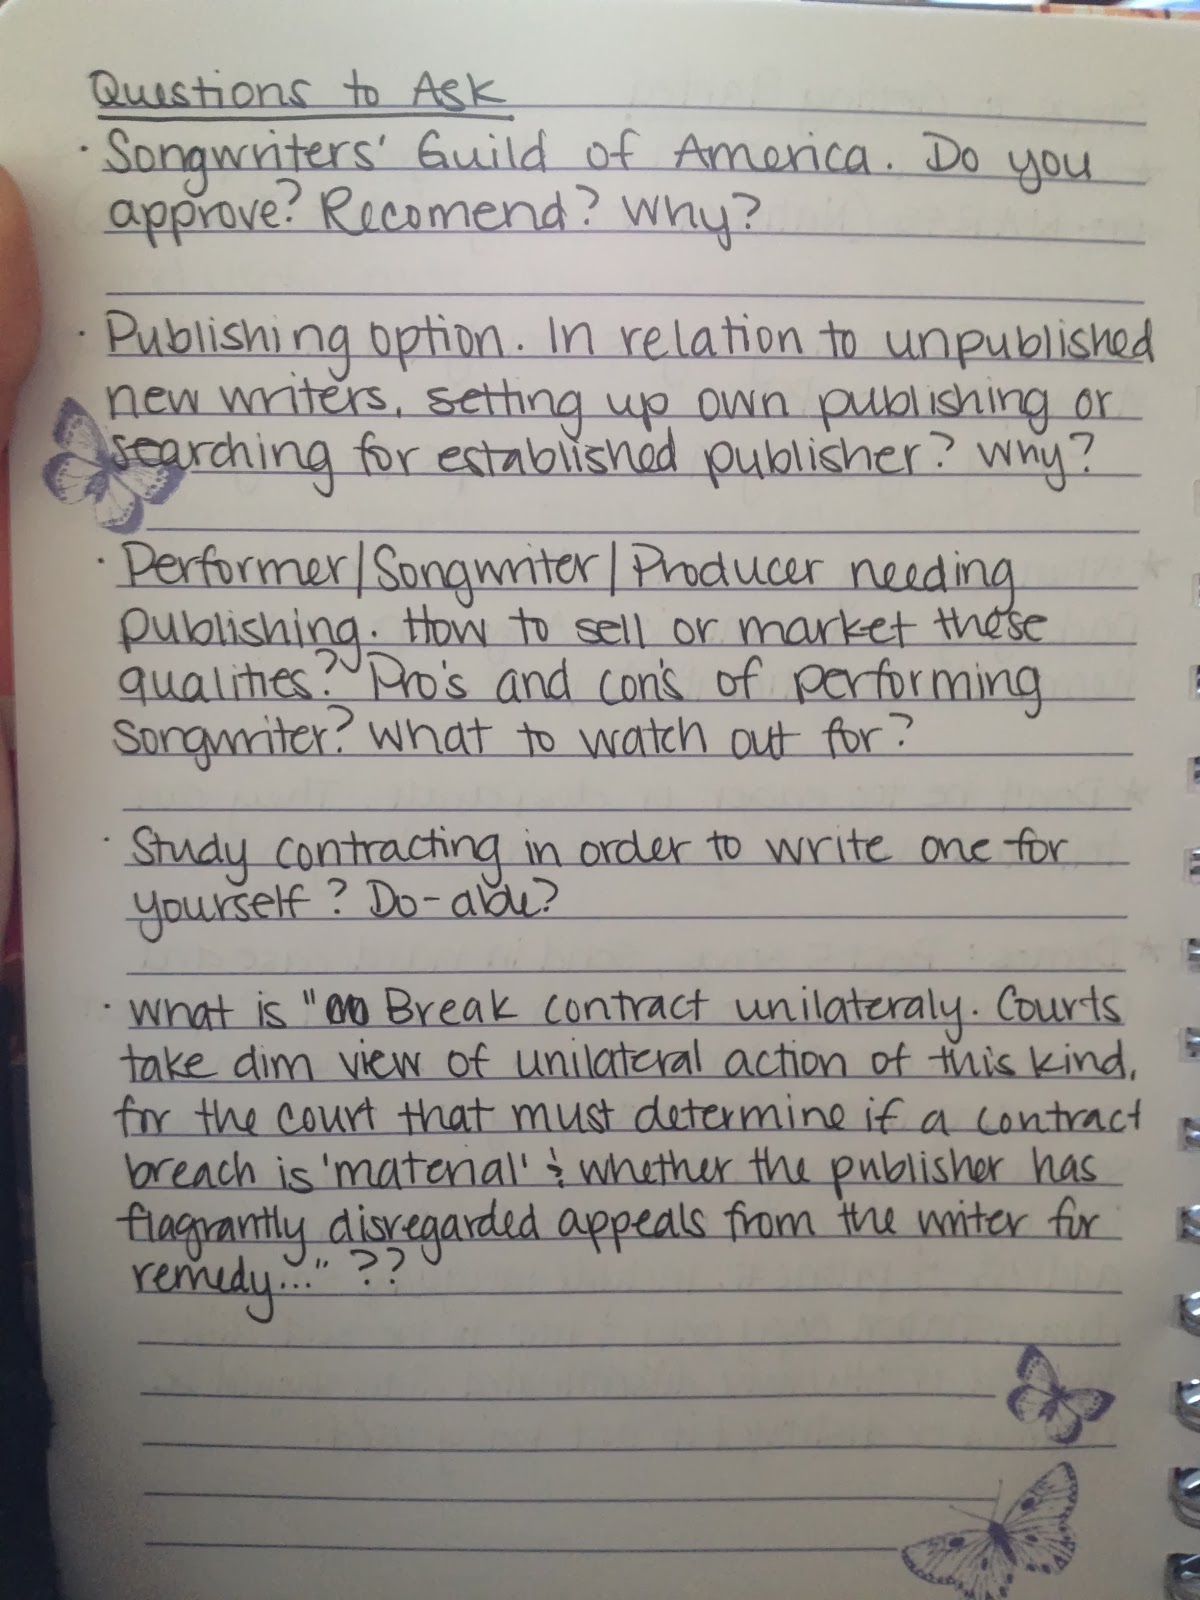 Questions to Ask
· Songwriters' Guild of America. Do you
approve? Recomend? Why?
· Publishing option. In relation to unpublished
new writers, setting up own publishing or
searching for established publisher? Why?
· Performer/Songwriter/Producer needing
publishing. How to sell or market these
qualities? Pro's and con's of performing
songwriter? What to watch out for?
· Study contracting in order to write one for
yourself? Do-able?
· What is " Break contract unilateraly. Courts
take dim view of unilateral action of this kind,
for the court that must determine if a contract
breach is 'material' & whether the publisher has
flagrantly disregarded appeals from the writer for
remedy..." ??